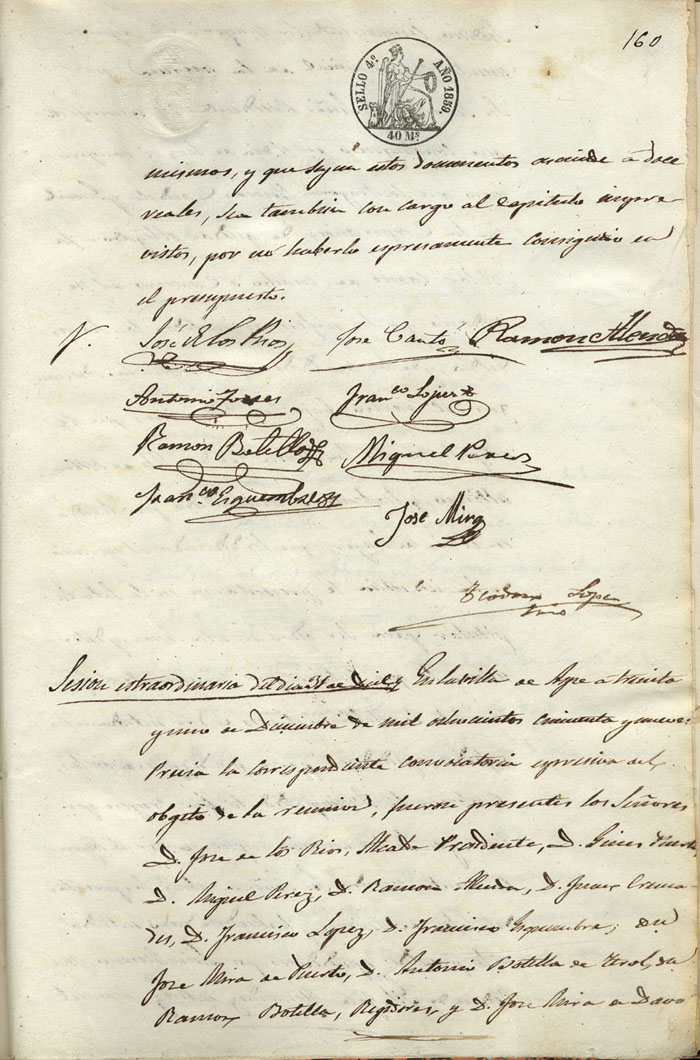 160
SELLO 4º AÑO 1859.
40 Ms
mismos, y que segun estos documentos asciende á doce
reales, sea tambien con cargo al Capitulo impre-
vistos, por no haberlo espresamente consignado en
el presupuesto.
José de los Rios José Cantó Ramon Almodo
Antonio Franco Lopez
Ramon Botella Miguel Perez
Franco Esquembre
José Mira
Teodoro Lopez
Sesion estraordinaria del dia 31 de Dice. En la villa de Aspe a treinta
y uno de Diciembre de mil ochocientos cincuenta y nueve:
Previa la correspondiente convocatoria espresiva del
obgeto de la reunion, fueron presentes los Señores
D. Jose de los Rios, Alcalde Presidente, D. Gines
D. Miguel Perez, D. Ramon D. Juan Crema-
des, D. Francisco Lopez, D. Francisco Esquembre, don
Jose Mira de Puerto, D. Antonio Botella de Terol, don
Ramon Botella, Regidores, y D. Jose Mira de